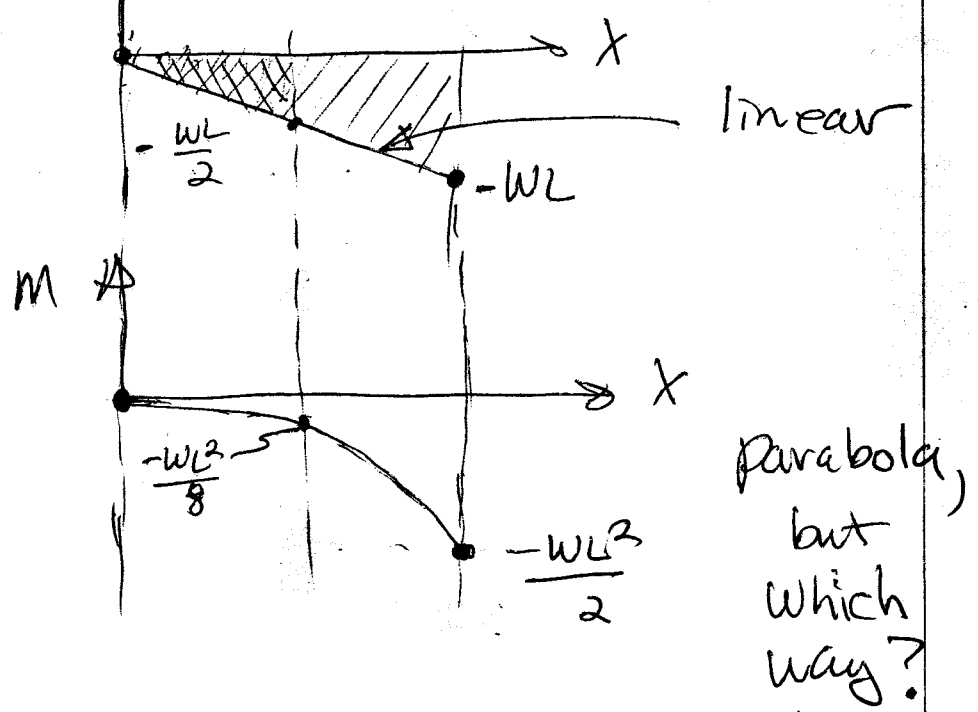 X
linear
- WL
2
-WL
M
X
-WL²
8
parabola,
but
which
way?
-WL²
2